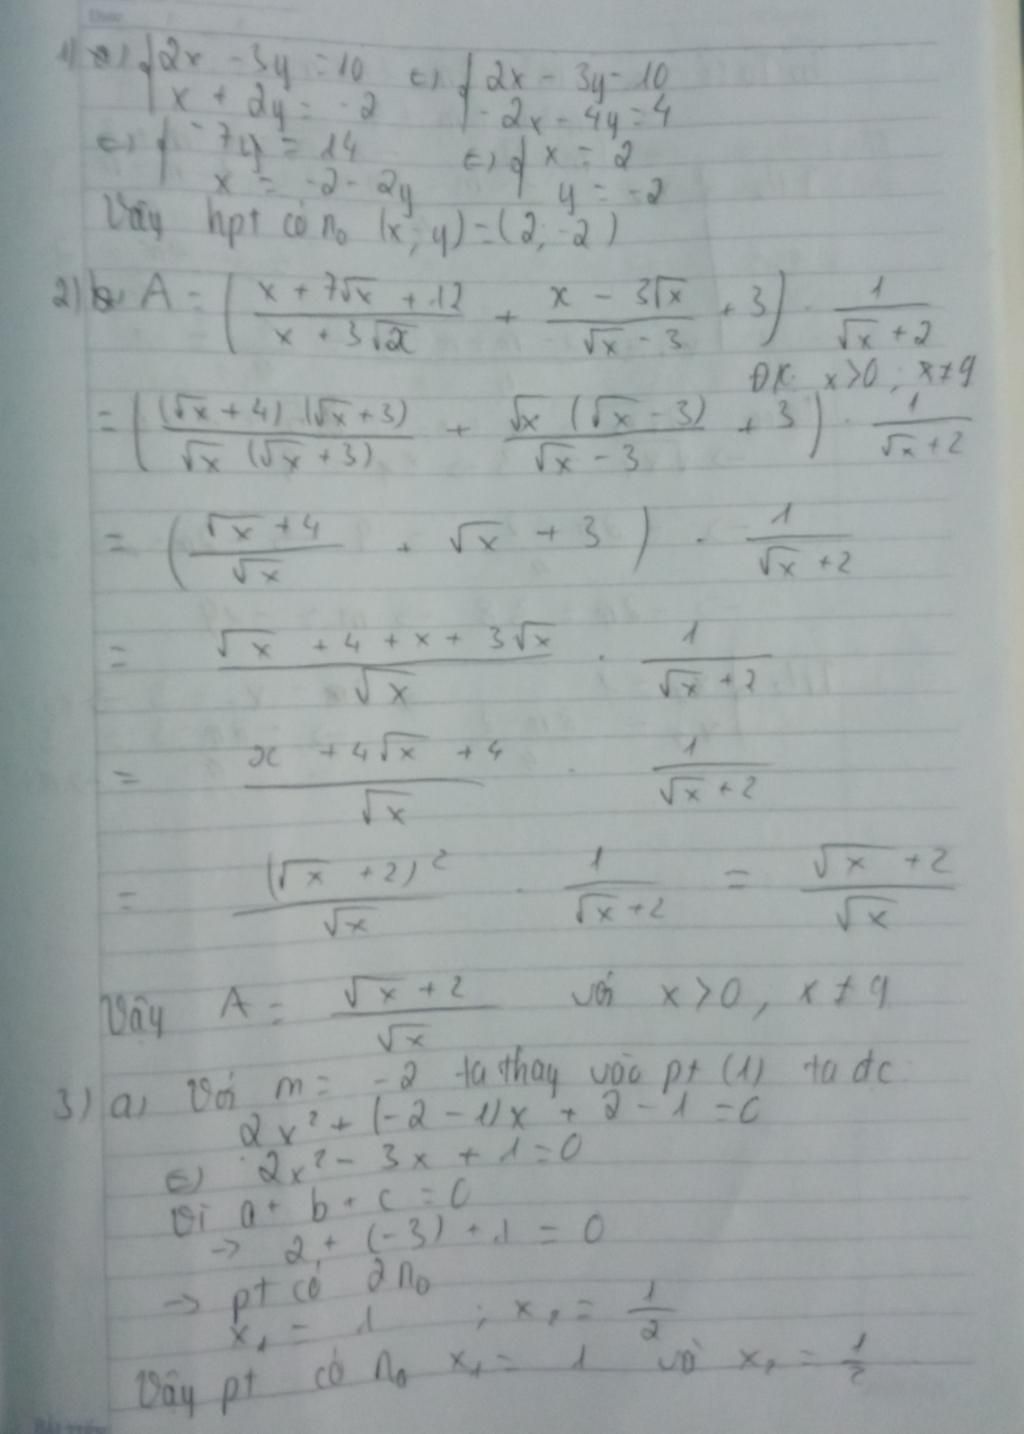 1) a) { 2x - 3y = 10 <=> { 2x - 3y = 10
x + 2y = -2 -2x - 4y = 4
<=> { -7y = 14 <=> { x = 2
x = -2 - 2y y = -2
Vậy hpt có n₀ (x; y) = (2; -2)
2) A = ( (x + 7√x + 12)/(x + 3√x) + (x - 3√x)/(√x - 3) + 3 ) . 1/(√x + 2)
ĐK: x > 0; x ≠ 9
= ( (√x + 4)(√x + 3)/(√x (√x + 3)) + √x (√x - 3)/(√x - 3) + 3 ) . 1/(√x + 2)
= ( (√x + 4)/√x + √x + 3 ) . 1/(√x + 2)
= (√x + 4 + x + 3√x)/√x . 1/(√x + 2)
= (x + 4√x + 4)/√x . 1/(√x + 2)
= (√x + 2)²/√x . 1/(√x + 2) = (√x + 2)/√x
Vậy A = (√x + 2)/√x với x > 0, x ≠ 9
3) a, Với m = -2 ta thay vào pt (1) ta đc
2x² + (-2 - 1)x + 2 - 1 = 0
<=> 2x² - 3x + 1 = 0
Vì a + b + c = 0
-> 2 + (-3) + 1 = 0
-> pt có 2 n₀
x₁ = 1 ; x₂ = 1/2
Vậy pt có n₀ x₁ = 1 và x₂ = 1/2